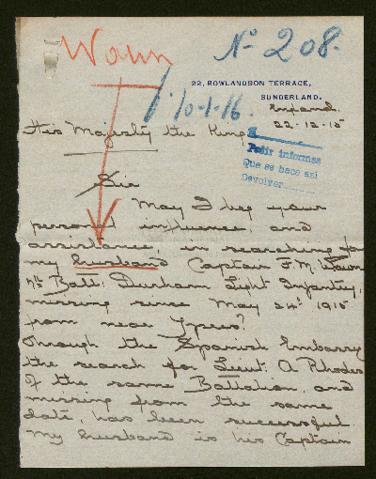 Wawn
Nº 208.
22, ROWLANDSON TERRACE,
SUNDERLAND.
England
10-1-16
22-12-15
His Majesty the King
Pedir informes
Que se hace asi
Devolver
Sir
May I beg your
personal influence and
assistance, in searching for
my husband Captain F. M. Wawn
7th Batt: Durham Light Infantry,
missing since May 24th 1915
from near Ypres?
Through the Spanish Embassy
the search for Lieut. A Rhodes
of the same Battalion, and
missing from the same
date, has been successful.
My husband is his Captain